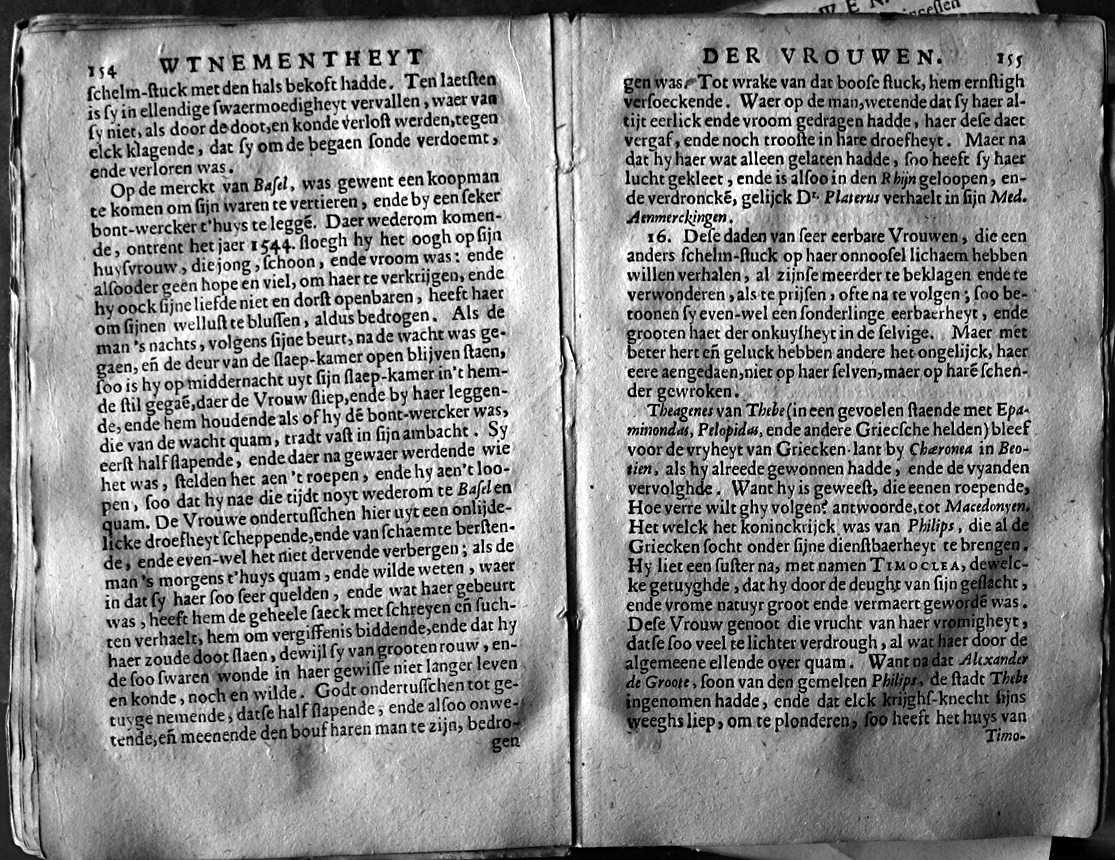 W E N.
inceſſen
154 WTNEMENTHEYT
ſchelm-ſtuck met den hals bekoft hadde. Ten laetſten
is ſy in ellendige ſwaermoedigheyt vervallen, waer van
ſy niet, als door de doot, en konde verloſt werden, tegen
elck klagende, dat ſy om de begaen ſonde verdoemt,
ende verloren was.
Op de merckt van Baſel, was gewent een koopman
te komen om ſijn waren te vertieren, ende by een ſeker
bont-wercker t'huys te leggē. Daer wederom komen-
de, ontrent het jaer 1544. ſloegh hy het oogh op ſijn
huyſvrouw, die jong, ſchoon, ende vroom was: ende
alſooder geen hope en viel, om haer te verkrijgen, ende
hy oock ſijne liefde niet en dorſt openbaren, heeft haer
om ſijnen welluſt te bluſſen, aldus bedrogen. Als de
man 's nachts, volgens ſijne beurt, na de wacht was ge-
gaen, eñ de deur van de ſlaep-kamer open blijven ſtaen,
ſoo is hy op middernacht uyt ſijn ſlaep-kamer in't hem-
de ſtil gegaē, daer de Vrouw ſliep, ende by haer leggen-
de, ende hem houdende als of hy dē bont-wercker was,
die van de wacht quam, tradt vaſt in ſijn ambacht. Sy
eerſt half ſlapende, ende daer na gewaer werdende wie
het was, ſtelden het aen 't roepen, ende hy aen't loo-
pen, ſoo dat hy nae die tijdt noyt wederom te Baſel en
quam. De Vrouwe ondertuſſchen hier uyt een onlijde-
licke droefheyt ſcheppende, ende van ſchaemte berſten-
de, ende even-wel het niet dervende verbergen; als de
man 's morgens t'huys quam, ende wilde weten, waer
in dat ſy haer ſoo ſeer quelden, ende wat haer gebeurt
was, heeft hem de geheele ſaeck met ſchreyen eñ ſuch-
ten verhaelt, hem om vergiffenis biddende, ende dat hy
haer zoude doot ſlaen, dewijl ſy van grooten rouw, en-
de ſoo ſwaren wonde in haer gewiſſe niet langer leven
en konde, noch en wilde. Godt ondertuſſchen tot ge-
tuyge nemende, datſe half ſlapende, ende alſoo onwe-
tende, eñ meenende den bouf haren man te zijn, bedro-
gen
DER VROUWEN. 155
gen was. Tot wrake van dat booſe ſtuck, hem ernſtigh
verſoeckende. Waer op de man, wetende dat ſy haer al-
tijt eerlick ende vroom gedragen hadde, haer deſe daet
vergaf, ende noch trooſte in hare droefheyt. Maer na
dat hy haer wat alleen gelaten hadde, ſoo heeft ſy haer
lucht gekleet, ende is alſoo in den Rhijn geloopen, en-
de verdronckē, gelijck Dr. Platerus verhaelt in ſijn Med.
Aenmerckingen.
16. Deſe daden van ſeer eerbare Vrouwen, die een
anders ſchelm-ſtuck op haer onnooſel lichaem hebben
willen verhalen, al zijnſe meerder te beklagen ende te
verwonderen, als te prijſen, ofte na te volgen; ſoo be-
toonen ſy even-wel een ſonderlinge eerbaerheyt, ende
grooten haet der onkuyſheyt in de ſelvige. Maer met
beter hert eñ geluck hebben andere het ongelijck, haer
eere aengedaen, niet op haer ſelven, maer op harē ſchen-
der gewroken.
Theagenes van Thebe (in een gevoelen ſtaende met Epa-
minondas, Pelopidas, ende andere Griecſche helden) bleef
voor de vryheyt van Griecken-lant by Chæronea in Beo-
tien, als hy alreede gewonnen hadde, ende de vyanden
vervolghde. Want hy is geweeſt, die eenen roepende,
Hoe verre wilt ghy volgen? antwoorde, tot Macedonyen.
Het welck het koninckrijck was van Philips, die al de
Griecken ſocht onder ſijne dienſtbaerheyt te brengen.
Hy liet een ſuſter na, met namen TIMOCLEA, dewelc-
ke getuyghde, dat hy door de deught van ſijn geſlacht,
ende vrome natuyr groot ende vermaert gewordē was.
Deſe Vrouw genoot die vrucht van haer vromigheyt,
datſe ſoo veel te lichter verdrough, al wat haer door de
algemeene ellende over quam. Want na dat Alexander
de Groote, ſoon van den gemelten Philips, de ſtadt Thebe
ingenomen hadde, ende dat elck krijghſ-knecht ſijns
weeghs liep, om te plonderen, ſoo heeft het huys van
Timo-